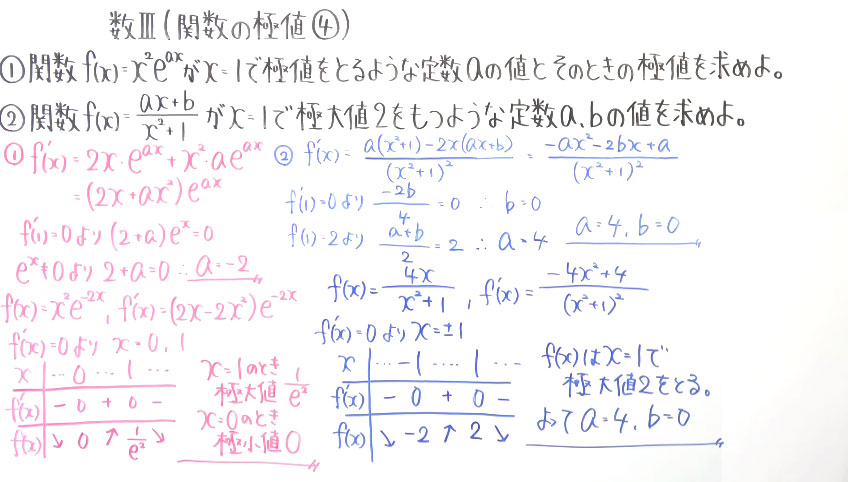 数Ⅲ(関数の極値④)
①関数f(x)=x²e^{ax}がx=1で極値をとるような定数aの値とそのときの極値を求めよ。
②関数f(x)=\frac{ax+b}{x²+1}がx=1で極大値2をもつような定数a,bの値を求めよ。
① f'(x)=2x・e^{ax}+x²・ae^{ax}
=(2x+ax²)e^{ax}
f'(1)=0より(2+a)e^x=0
e^x≠0より2+a=0∴a=-2
f(x)=x²e^{-2x}, f'(x)=(2x-2x²)e^{-2x}
f'(x)=0よりx=0,1
x … 0 … 1 …
f'(x) - 0 + 0 -
f(x) ↘ 0 ↗ \frac{1}{e²} ↘
x=1のとき
極大値\frac{1}{e²}
x=0のとき
極小値0
② f'(x)=\frac{a(x²+1)-2x(ax+b)}{(x²+1)²}=\frac{-ax²-2bx+a}{(x²+1)²}
f'(1)=0より\frac{-2b}{4}=0∴b=0
f(1)=2より\frac{a+b}{2}=2∴a=4 a=4,b=0
f(x)=\frac{4x}{x²+1}, f'(x)=\frac{-4x²+4}{(x²+1)²}
f'(x)=0よりx=±1
x … -1 … 1 …
f'(x) - 0 + 0 -
f(x) ↘ -2 ↗ 2 ↘
f(x)はx=1で
極大値2をとる。
よってa=4,b=0